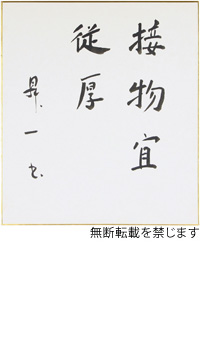 接物宜
従厚
昇一書
無断転載を禁じます